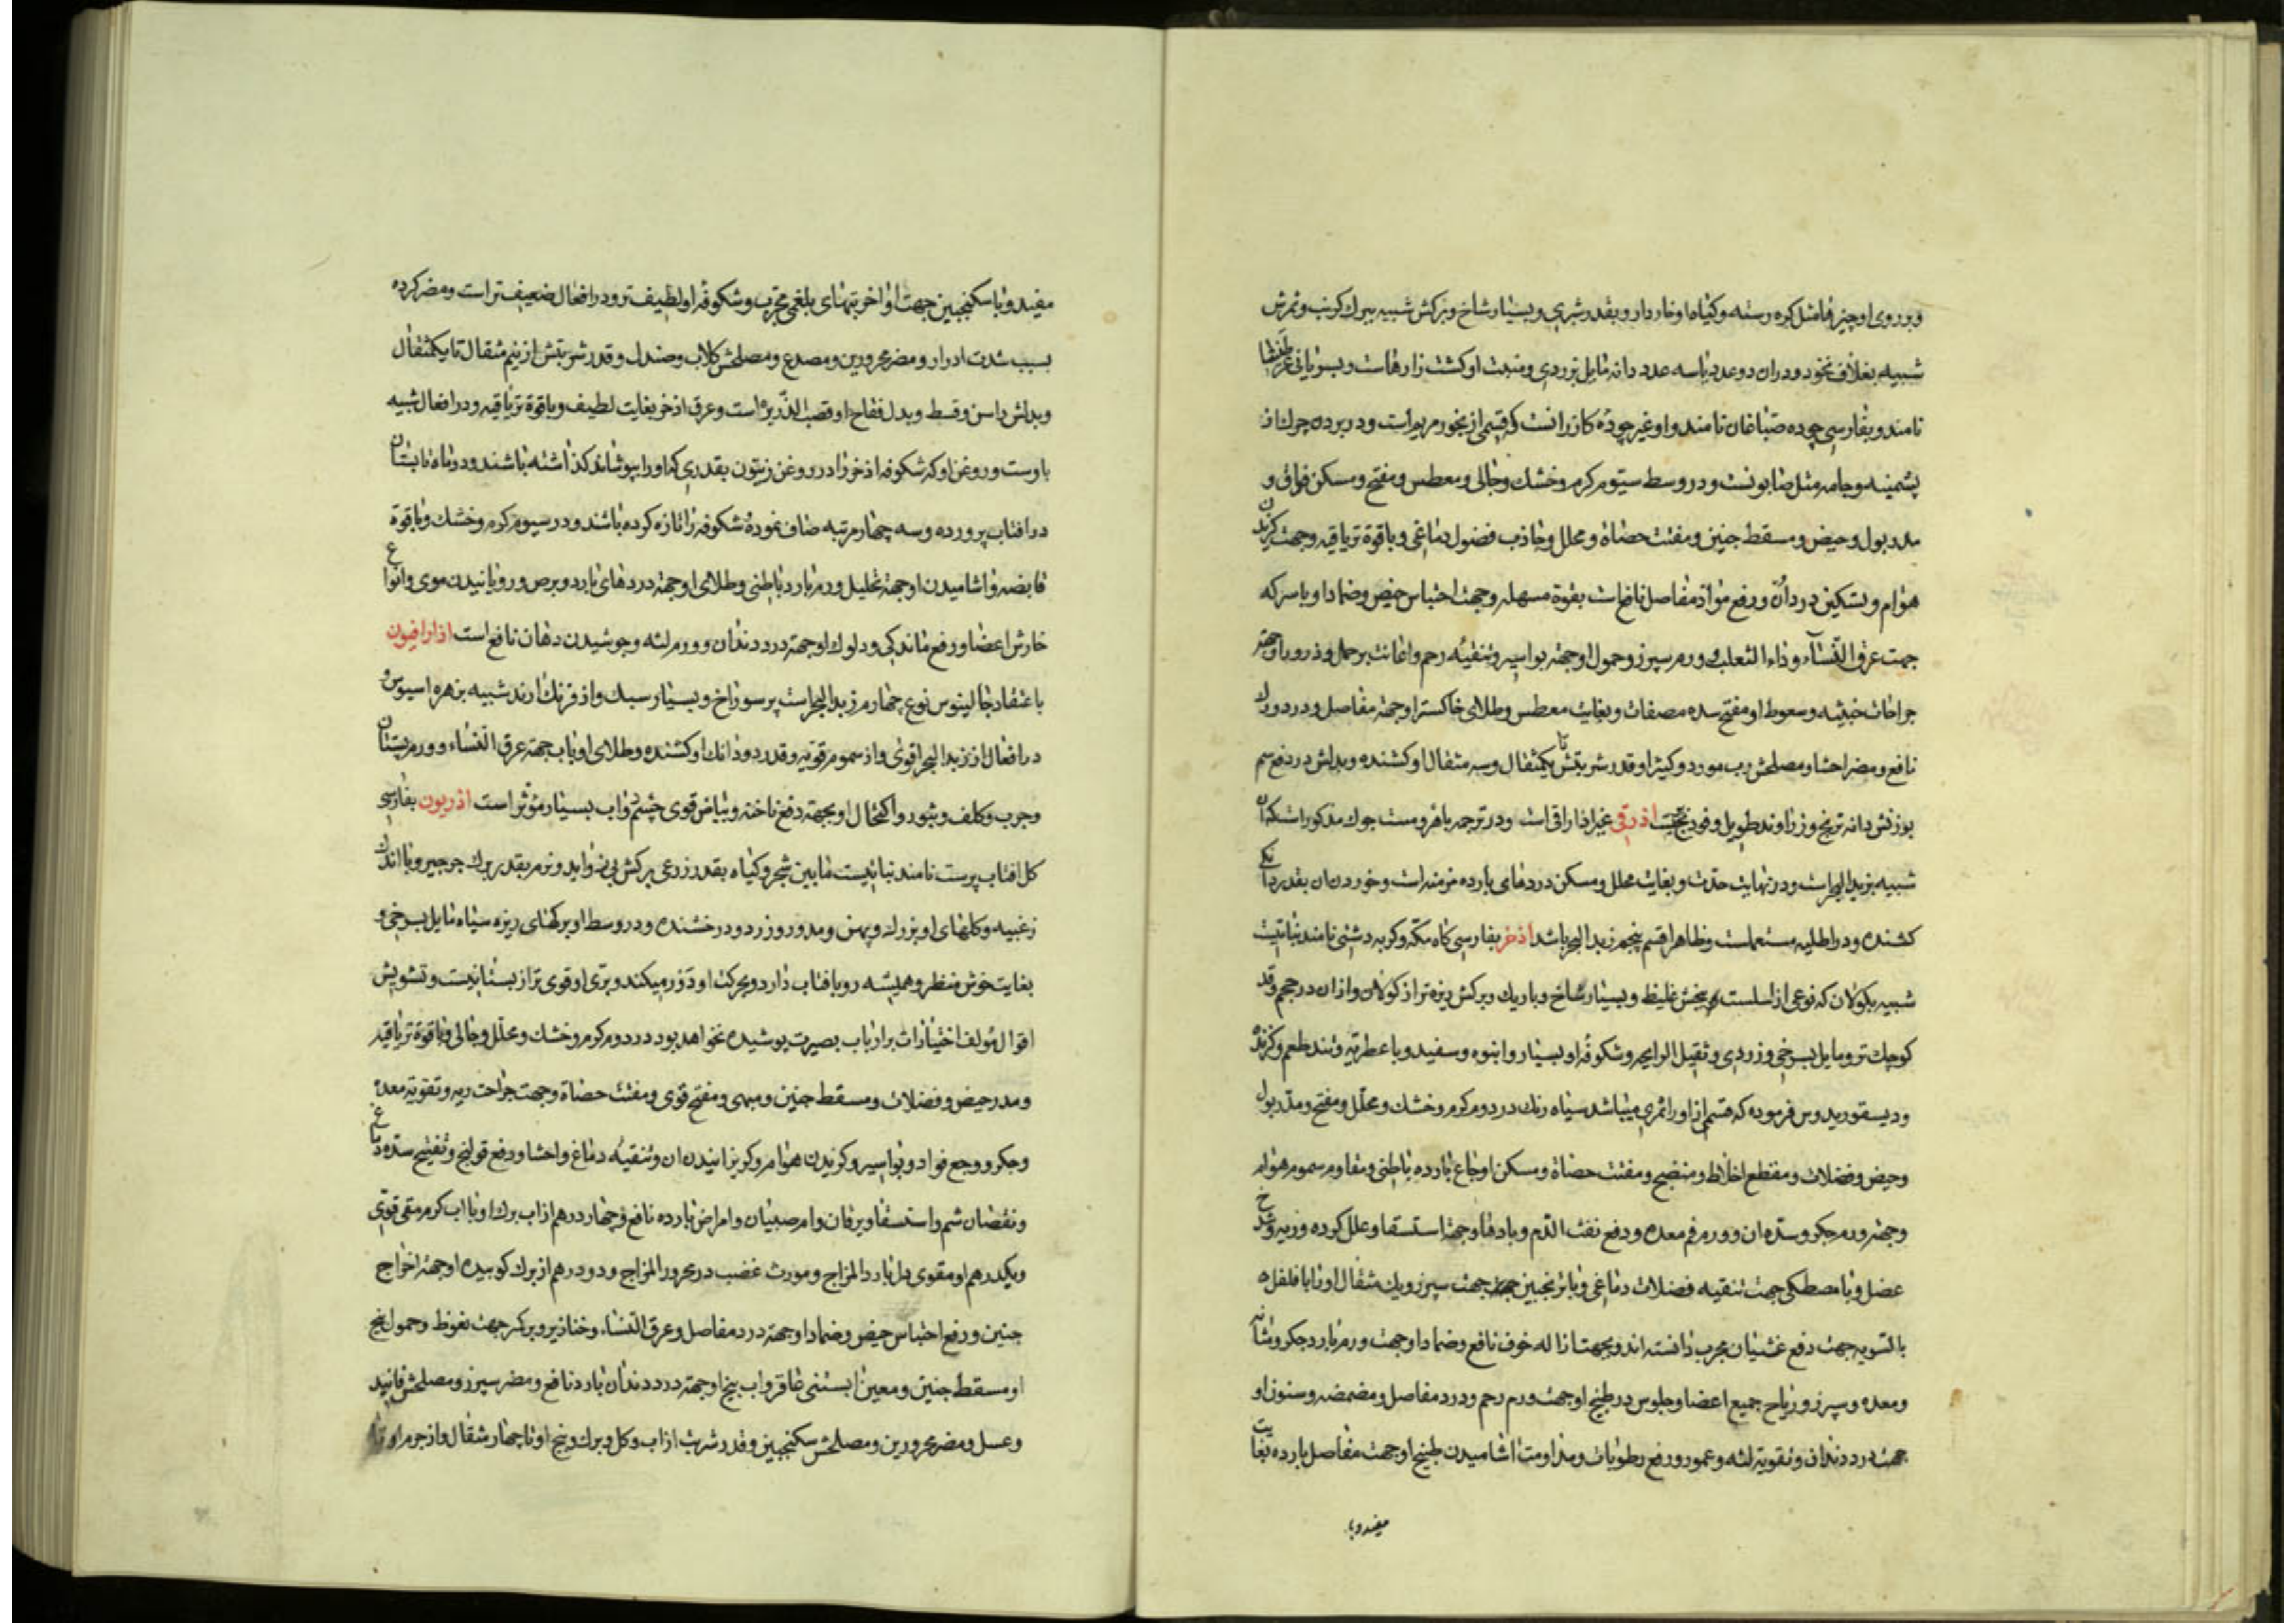 و بر روی او چیزها مثل کره رسته و کیاه او خاردار و بقدر شبری و بسیار شاخ و برکش شبیه ببرک کرنب و ثمرش
شبیه بغلاف نخود و در ان دو عدد یا سه عدد دانه مایل بزردی و منبت او کشت زارهاست و بسریانی
نامند و بفارسی چوده صباغان نامند و او غیر چوده کازرانست که قسمی از بخور مریم است و در بردن چرک از
پشمینه و جامه مثل صابونست و در وسط سیوم کرم و خشک و جالی و معطس و مفتح و مسکن فواق و
مدر بول و حیض و مسقط جنین و مفتت حصاة و محلل و جاذب فضول دماغی و با قوة تریاقیه و جهت کزیدن
هوام و تسکین درد آن و رفع مواد مفاصل نافعست بقوة مسهله و جهت احتباس حیض و ضمادا و با سرکه
جهت عرق النساء و داء الثعلب و ورم سپرز و حمول او جهة بواسیر و تنقیه رحم و اعانت بر حمل و ذرور او جهة
جراحات خبیثه و سعوط او مفتح سده مصفات و بغایت معطس و طلای خاکستر او جهة مفاصل و درد ورک
نافع و مضر احشا و مصلحش رب مورد و کیترا و قدر شربتش تا یکمثقال و سه مثقال او کشنده و بدلش در دفع سم
بوزنش دانه ترنج و زراوند طویل و فودنج است اذرقی غیر اذاراقی است و در ترجمه باهر و مست جوک مذکور است که ان
شبیه بزبد البحر است و در نهایت حدت و بغایت محلل و مسکن دردهای بارده مزمنه است و خوردن ان بقدر دانکی
کشنده و در اطلیه مستعملست و ظاهرا قسم پنجم زبد البحر باشد اذخر بفارسی کاه مکه و کربه دشتی نامند نباتیست
شبیه بکولان که نوعی از اسلست بیخش غلیظ و بسیار شاخ و باریک و برکش ریزه تر از کولان و از ان در حجم و قد
کوچک تر و مایل بسرخی و زردی و ثقیل الرایحه و شکوفه او بسیار و انبوه و سفید و با عطریه و تند طعم و کزنده
و دیسقوریدوس فرموده که قسمی از او را ثمری میباشد سیاه رنک در دوم کرم و خشک و محلل و مفتح و مدر بول
و حیض و فضلات و مقطع اخلاط و منضج و مفتت حصاة و مسکن اوجاع بارده باطنی و مقاوم سموم هوام
و جهة ورم جکر و سده ان و ورم فم معده و دفع نفث الدم و بادها و جهة استسقا و علل کرده و ریه و شدخ
عضل و با مصطکی جهت تنقیه فضلات دماغی و با ترنجبین جهت سپرز و یک مثقال او تا با فلفل
بالتسویه جهت دفع غثیان مجرب دانسته اند و بجهت ازاله خوف نافع و ضمادا و جهت ورم بارد جکر و مثانه
و معده و سپرز و ریاح جمیع اعضا و جلوس در طبیخ او جهت ورم رحم و درد مفاصل و مضمضه و سنون او
جهت درد دندان و تقویة لثه و عمور و رفع رطوبات و مداومت اشامیدن طبیخ او جهت مفاصل بارده بغایت
مفید و با
مفید و با سکنجبین جهت اواخر تبهای بلغمی مجرب و شکوفه او لطیف تر و در افعال ضعیف تر است و مضر کرده
بسبب شدت ادرار و مضر محرورین و مصدع و مصلحش کلاب و صندل و قدر شربتش از نیم مثقال تا یکمثقال
و بدلش راسن و قسط و بدل فقاح او قصب الذریره است و عرق اذخر بغایت لطیف و با قوة تریاقیه و در افعال شبیه
باوست و روغن او که شکوفه اذخر را در روغن زیتون بقدری که او را بپوشاند کذاشته باشند و در ماه تابستان
در افتاب پرورده و سه چهار مرتبه صاف نموده شکوفه را تازه کرده باشند و در سیوم کرم و خشک و با قوة
قابضه و اشامیدن او جهة تحلیل ورم بارد باطنی و طلای او جهة دردهای بارد و برص و رویانیدن موی و انواع
خارش اعضا و رفع ماندکی و دلوک او جهة درد دندان و ورم لثه و جوشیدن دهان نافع است اذارافیون
باعتقاد جالینوس نوع چهارم زبد البحر است پر سوراخ و بسیار سبک و از فرنک ارند شبیه بزهره اسیوس و
در افعال از زبد البحر اقوی و از سموم قویه و قدر دو دانک او کشنده و طلای او باب جهة عرق النساء و ورم پستان
و جرب و کلف و بثور و اکتحال او بجهة دفع ناخنه و بیاض قوی چشم دواب بسیار مؤثر است اذریون بفارسی
کل افتاب پرست نامند نباتیست مابین شجر و کیاه بقدر زرعی برکش بی زواید و نرم بقدر برک جرجیر و با اندک
زغبیه و کلهای او بزرک و پهن و مدور و زرد و درخشنده و در وسط او برکهای ریزه سیاه مایل بسرخی و
بغایت خوش منظر و همیشه رو بافتاب دارد و بحرکت او دور میکند و بری او قوی تر از بستانیست و تشویش
اقوال مؤلف اختیارات بر ارباب بصیرت پوشیده نخواهد بود در دوم کرم و خشک و محلل و جالی و با قوة تریاقیه
و مدر حیض و فضلات و مسقط جنین و مبهی و مفتح قوی و مفتت حصاة و جهت جراحت ریه و تقویة معده
و جکر و وجع فواد و بواسیر و کزیدن هوام و کریزانیدن ان و تنقیه دماغ و احشا و رفع قولنج و تفتیح سده دماغ
و نقصان شم و استسقا و یرقان و ام صبیان و امراض بارده نافع و چهار درهم از اب برک او با اب کرم مقئ قوی
و یکدرهم او مقوی دل بارد المزاج و مورث غضب در محرور المزاج و دو درهم از برک کوبیده او جهة اخراج
جنین و رفع احتباس حیض و ضمادا و جهة درد مفاصل و عرق النساء و خنازیر و بر کمر جهت نعوظ و حمول بیخ
او مسقط جنین و معین ابستنی عاقر و اب بیخ او جهة درد دندان بارد نافع و مضر سپرز و مصلحش فانید
و عسل و مضر محرورین و مصلحش سکنجبین و قدر شربت از اب و کل و برک و بیخ او تا چهار مثقال و از جرم او